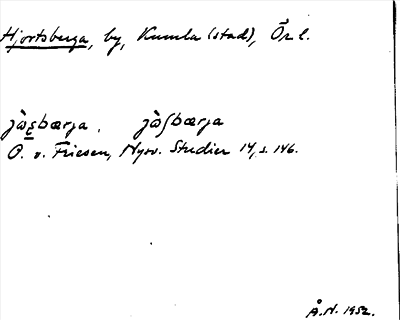 Hjortsberga, by, Kumla (stad), Ör l.
jò̀ʂbærja. jò̀ʃbærja
O. v. Friesen, Nysv. Studier 14, s. 146.
Å.N. 1952.